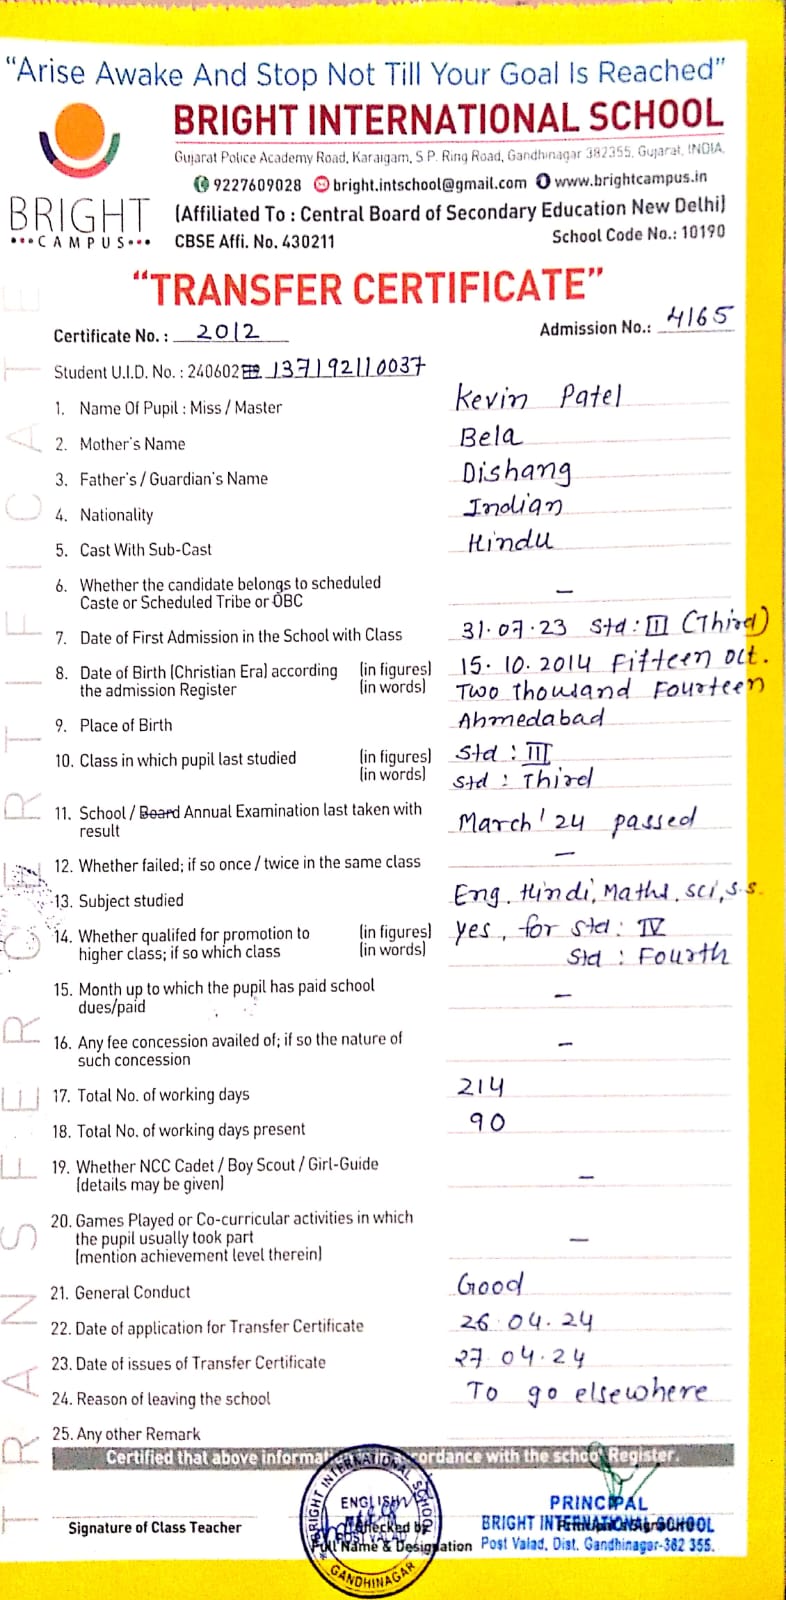 “Arise Awake And Stop Not Till Your Goal Is Reached”
BRIGHT INTERNATIONAL SCHOOL
Gujarat Police Academy Road, Karaigam, S P. Ring Road, Gandhinagar 382355, Gujarat, INDIA.
9227609028 bright.intschool@gmail.com www.brightcampus.in
BRIGHT
•••CAMPUS•••
(Affiliated To : Central Board of Secondary Education New Delhi)
CBSE Affi. No. 430211 School Code No.: 10190
“TRANSFER CERTIFICATE”
Certificate No. : 2012 Admission No.: 4165
Student U.I.D. No. : 240602 137192110037
1. Name Of Pupil : Miss / Master Kevin Patel
2. Mother's Name Bela
3. Father's / Guardian's Name Dishang
4. Nationality Indian
5. Cast With Sub-Cast Hindu
6. Whether the candidate belongs to scheduled
Caste or Scheduled Tribe or OBC –
7. Date of First Admission in the School with Class 31.07.23 Std : III (Third)
8. Date of Birth (Christian Era) according (in figures) 15.10.2014 Fifteen Oct.
the admission Register (in words) Two thousand Fourteen
9. Place of Birth Ahmedabad
10. Class in which pupil last studied (in figures) Std : III
(in words) Std : Third
11. School / Board Annual Examination last taken with
result March' 24 passed
12. Whether failed; if so once / twice in the same class –
13. Subject studied Eng. Hindi, Maths, sci, s.s.
14. Whether qualifed for promotion to (in figures) Yes, for Std : IV
higher class; if so which class (in words) Std : Fourth
15. Month up to which the pupil has paid school
dues/paid –
16. Any fee concession availed of; if so the nature of
such concession –
17. Total No. of working days 214
18. Total No. of working days present 90
19. Whether NCC Cadet / Boy Scout / Girl-Guide
(details may be given) –
20. Games Played or Co-curricular activities in which
the pupil usually took part
(mention achievement level therein) –
21. General Conduct Good
22. Date of application for Transfer Certificate 26.04.24
23. Date of issues of Transfer Certificate 27.04.24
24. Reason of leaving the school To go elsewhere
25. Any other Remark
Certified that above accordance with the school Register.
BRIGHT INTERNATIONAL SCHOOL
ENGLISH
POST VALAD
GANDHINAGAR
Signature of Class Teacher
Checked by
Full Name & Designation
PRINCIPAL
BRIGHT INTERNATIONAL SCHOOL
Post Valad, Dist. Gandhinagar-382 355.
TRANSFER CERTIFICATE